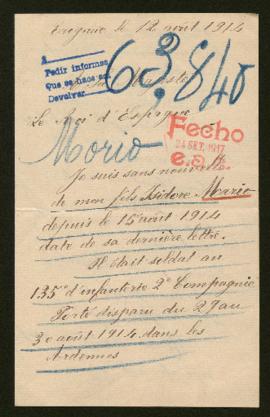 le 12 août 1914
A
Pedir informes
Que se haga
Devolver
63,840
Sa Majesté
Le Roi d'Espagne
Morio
Fecho
24 SET. 1917
Je suis sans nouvelle
de mon fils Isidore Mario
depuis le 15 août 1914
date de sa dernière lettre.
Il était soldat au
135e d'infanterie 2e Compagnie
Porté disparu du 29 au
30 août 1914 dans les
Ardennes